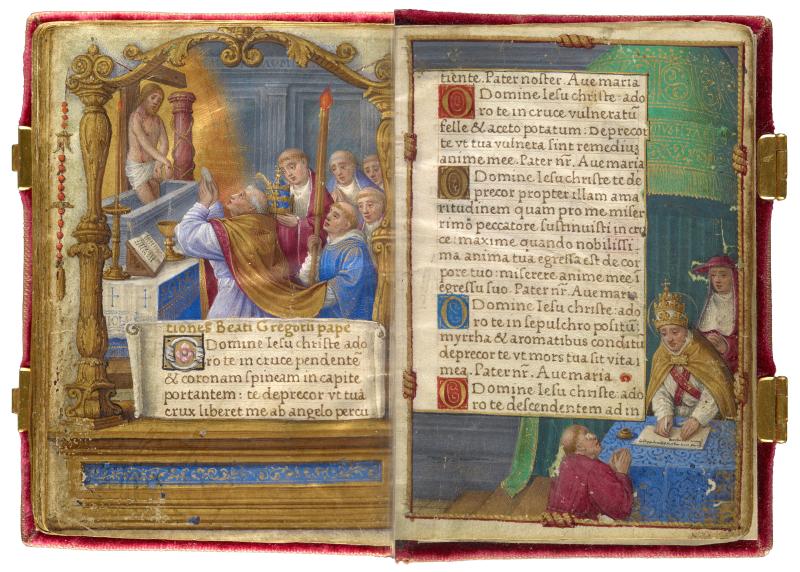 tiones Beati Gregorii pape
O Domine Iesu christe ado
ro te in cruce pendentē
& coronam spineam in capite
portantem: te deprecor vt tua
crux liberet me ab angelo percu
tiente. Pater noster. Aue maria
O Domine Iesu christe: ado
ro te in cruce vulneratū
felle & aceto potatum: Deprecor
te vt tua vulnera sint remediū
anime mee. Pater nr̄. Aue maria
O Domine Iesu christe te de
precor propter illam ama
ritudinem quam pro me miser
rimo peccatore sustinuisti in cru
ce: maxime quando nobilissi
ma anima tua egressa est de cor
pore tuo: miserere anime mee ī
egressu suo. Pater nr̄. Aue maria
O Domine Iesu christe: ado
ro te in sepulchro positū:
myrrha & aromatibus conditū
deprecor te vt mors tua sit vita
mea. Pater nr̄. Aue maria
O Domine Iesu christe: ado
ro te descendentem ad in